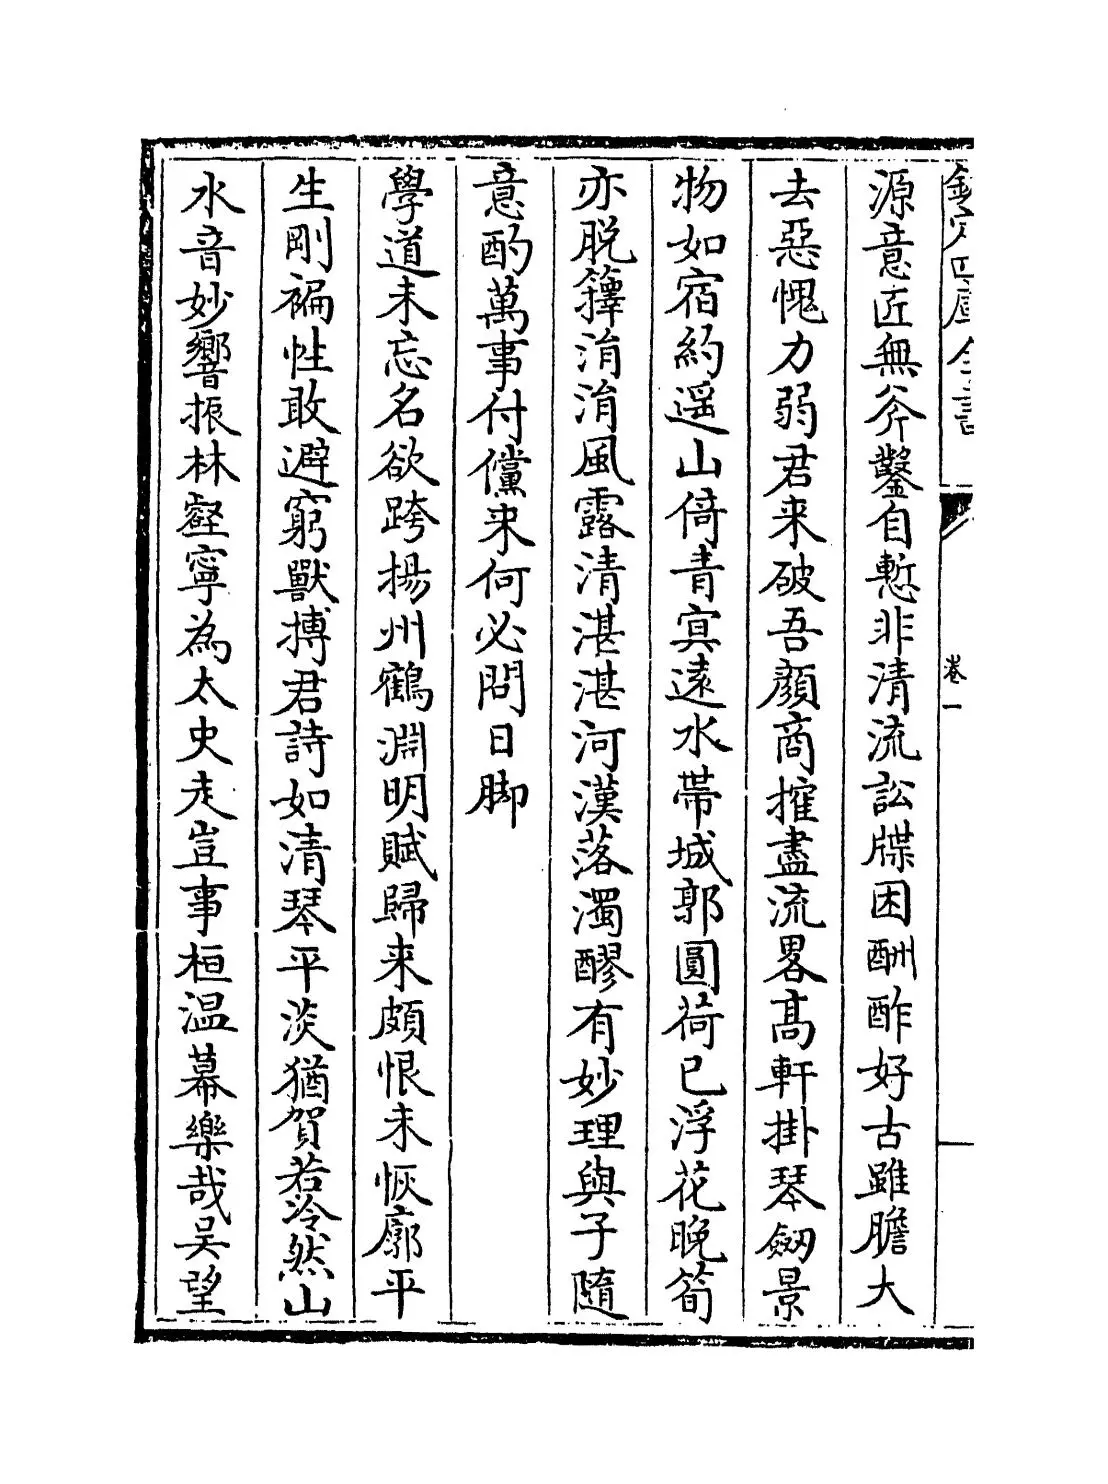 欽定四庫全書
卷一
源意匠無斧鑿自慙非清流訟牒困酬酢好古雖膽大
去惡愧力弱君来破吾顔商搉盡流畧髙軒掛琴劔景
物如宿約遥山倚青㝠遠水帶城郭圓荷已浮花晚筍
亦脱籜涓涓風露清湛湛河漢落濁醪有妙理與子隨
意酌萬事付儻来何必問日脚
學道未忘名欲跨揚州鶴淵明賦歸来頗恨未恢廓平
生剛褊性敢避窮獸搏君詩如清琴平淡猶賀若泠然山
水音妙響振林壑寧為太史走豈事桓温幕樂哉吴望